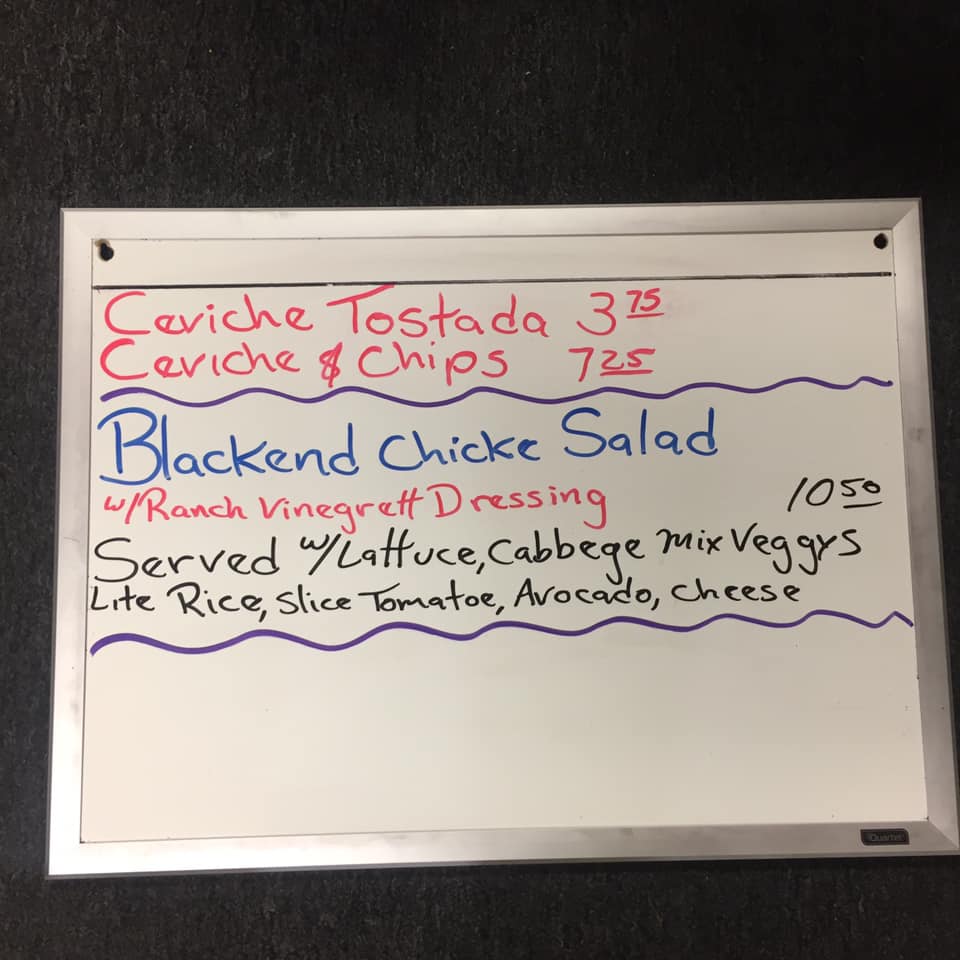 Ceviche Tostada 3 75
Ceviche & Chips 7 25
Blackend Chicke Salad
w/Ranch Vinegrett Dressing 10 50
Served w/Lattuce, Cabbege Mix Veggys
Lite Rice, Slice Tomatoe, Avocado, Cheese
Quartet